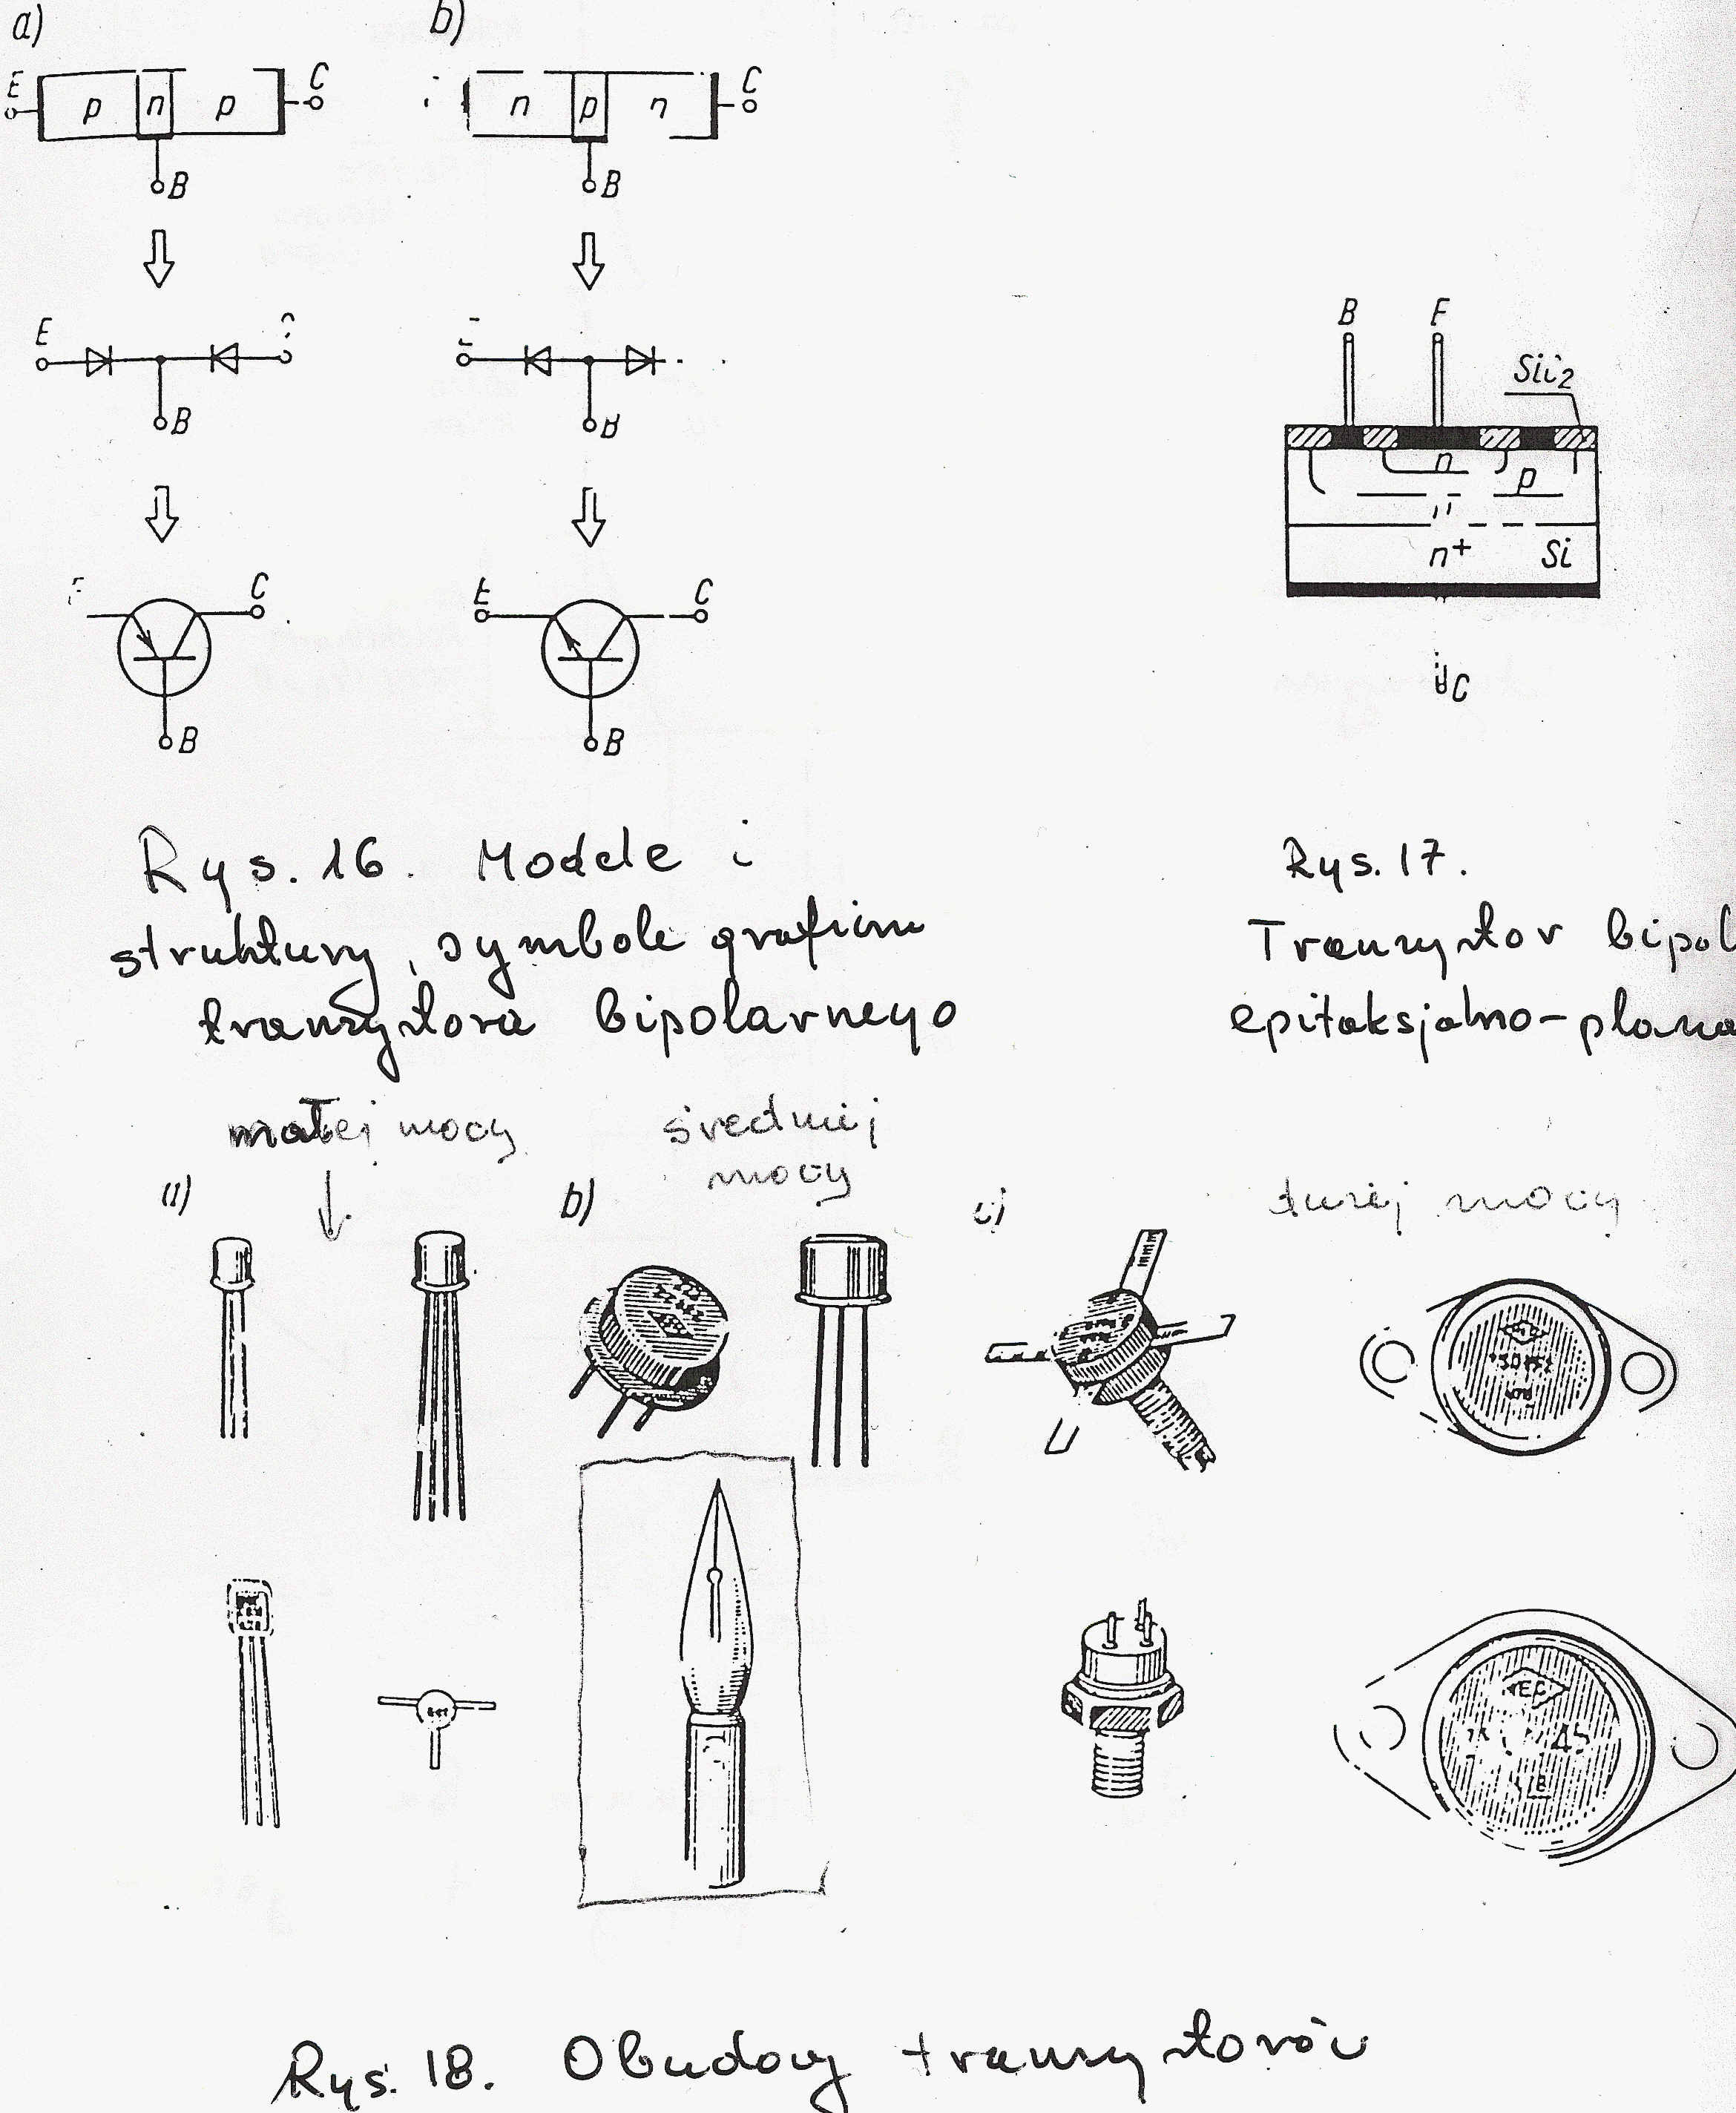 a)
b)
E p n p C
n p n C
B
B
E
B
B
B E
SiO2
n
p
n+ Si
C
C
E C
B
B
Rys. 16. Modele i
struktury, symbole graficzne
tranzystora bipolarnego
Rys. 17.
Tranzystor bipol
epitaksjalno-plana
małej mocy
średniej
mocy
dużej mocy
b)
c)
EC
Rys. 18. Obudowy tranzystorów